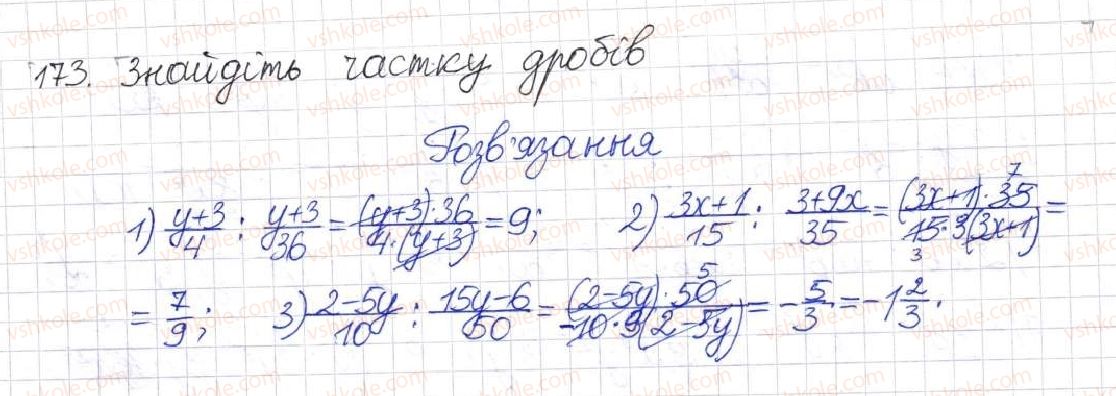 173. Знайдіть частку дробів
Розв'язання
1) (y+3)/4 : (y+3)/36 = ((y+3)·36)/(4·(y+3)) = 9; 2) (3x+1)/15 : (3+9x)/35 = ((3x+1)·35 7)/(15 3·3(3x+1)) =
= 7/9; 3) (2-5y)/10 : (15y-6)/50 = ((2-5y)·50 5)/(-10·3(2-5y)) = -5/3 = -1 2/3.